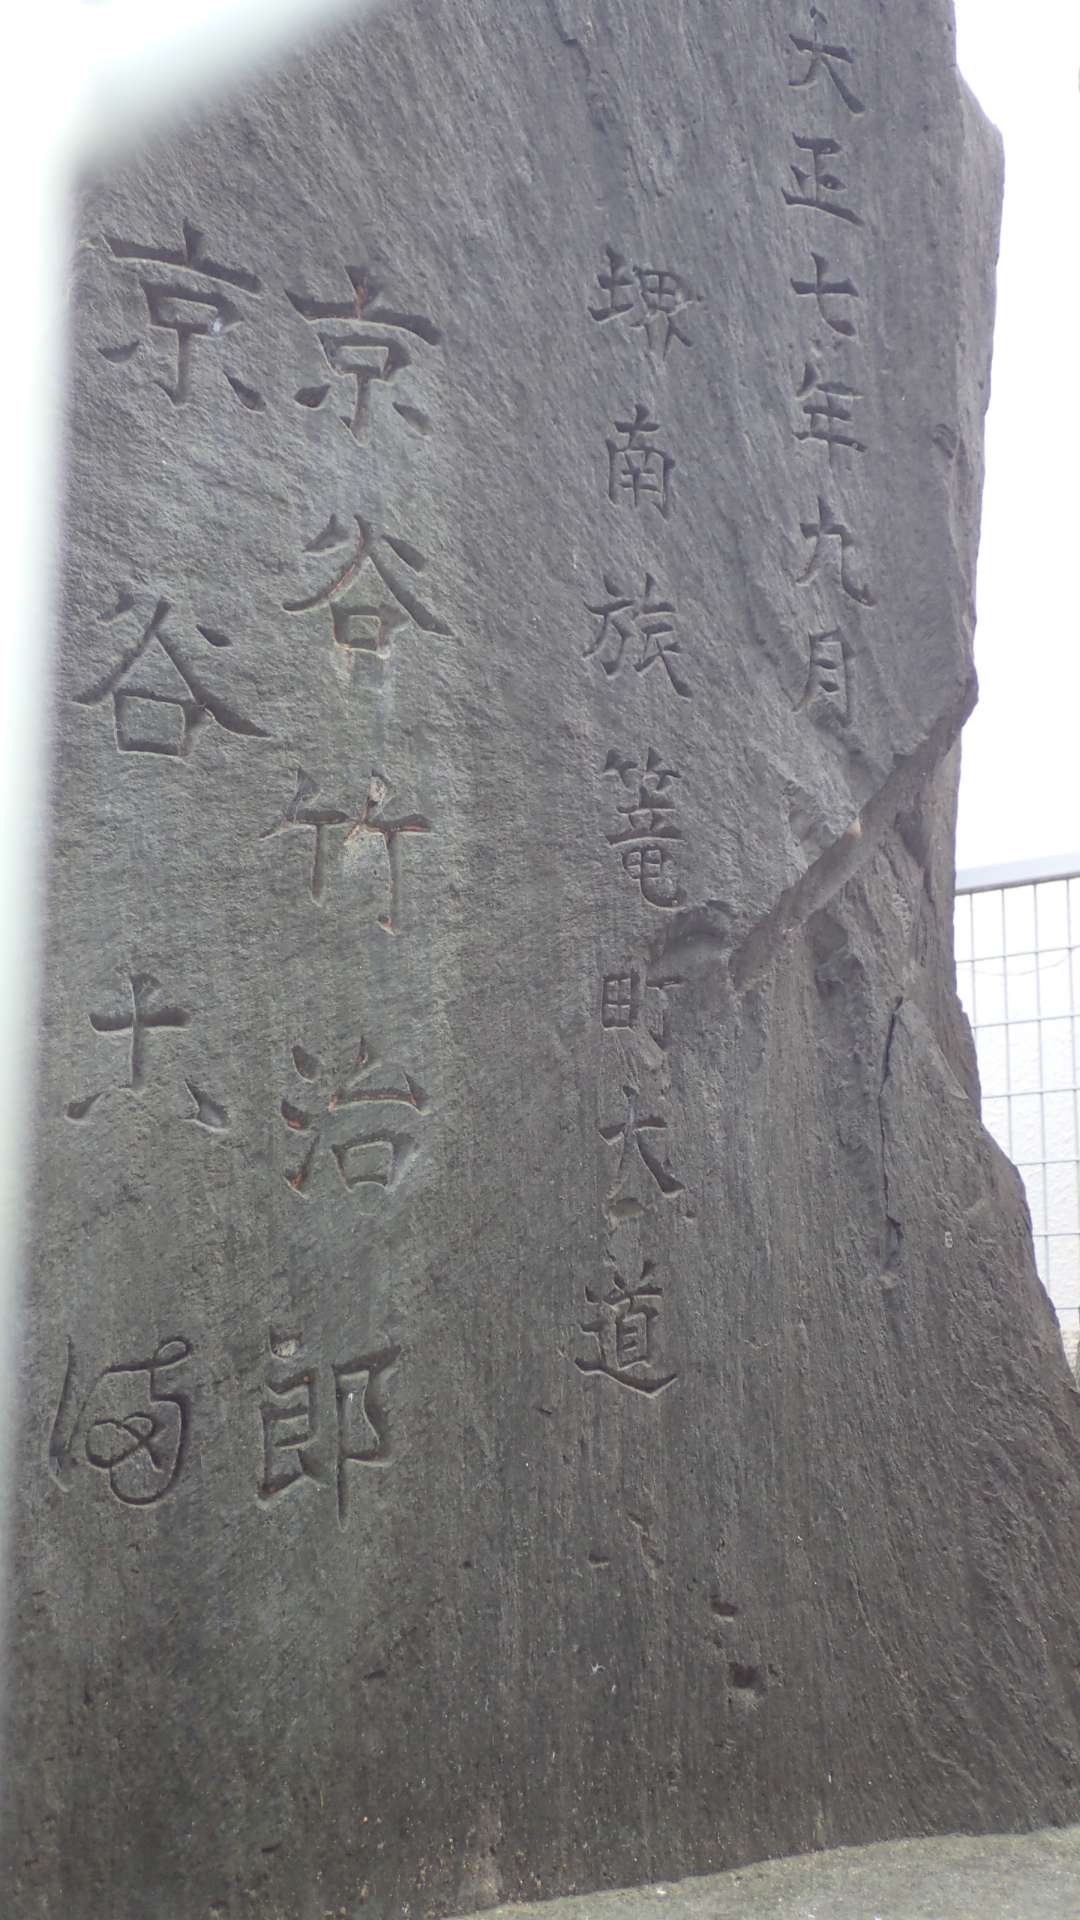 大正七年九月
堺南旅篭町大道
京谷竹治郎
京谷